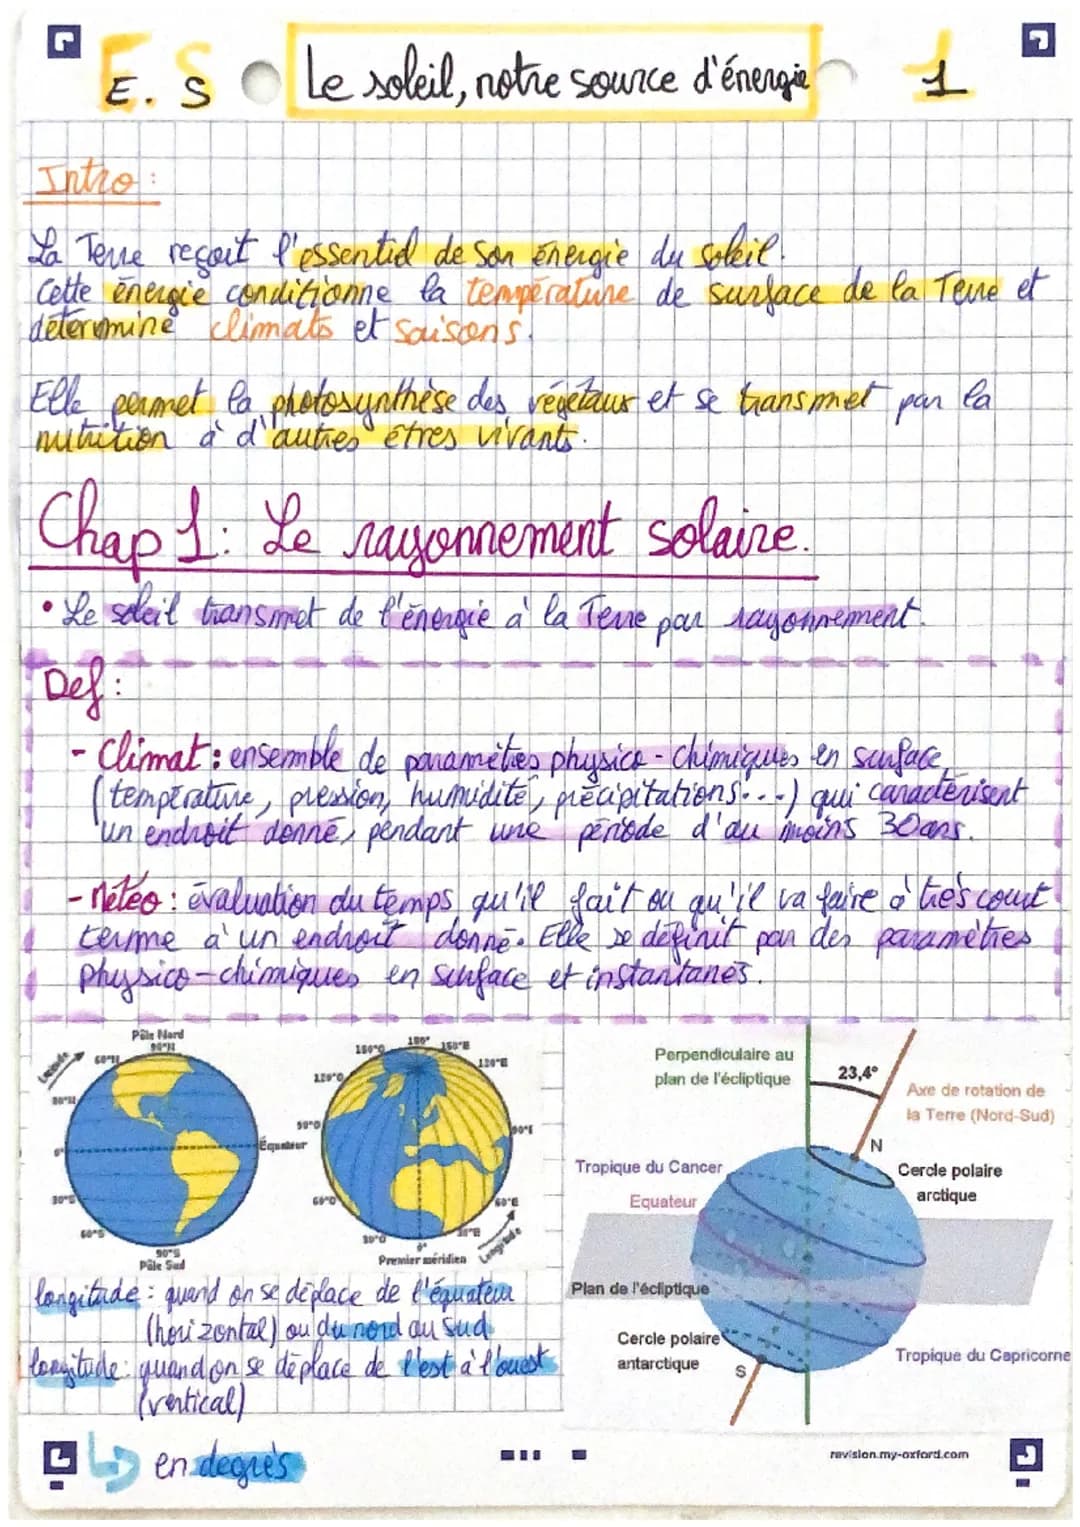 E. S
Le soleil, notre source d'énergie
1
Intro :
La Terre reçoit l'essentiel de son énergie du soleil.
Cette énergie conditionne la température de surface de la Terre et
détermine climats et saisons.
Elle permet la photosynthèse des végétaux et se transmet par la
nutrition à d'autres êtres vivants.
Chap 1: Le rayonnement solaire.
• Le soleil transmet de l'énergie à la Terre par rayonnement.
Def :
- Climat : ensemble de paramètres physico-chimiques en surface
(température, pression, humidité, précipitations...) qui caractérisent
un endroit donné, pendant une période d'au moins 30ans.
- Météo : évaluation du temps qu'il fait ou qu'il va faire à très court
terme à un endroit donné. Elle se définit par des paramètres
physico-chimiques en surface et instantanés.
Pôle Nord
90°N
60°N
Latitude
30°N
0°
Équateur
30°S
60°S
90°S
Pôle Sud
180°
150°O
150°E
120°O
120°E
90°O
90°E
60°O
60°E
30°O
30°E
0°
Premier méridien
Longitude
Perpendiculaire au
plan de l'écliptique
23,4°
Axe de rotation de
la Terre (Nord-Sud)
N
Tropique du Cancer
Cercle polaire
arctique
Equateur
Plan de l'écliptique
Cercle polaire
antarctique
S
Tropique du Capricorne
longitude : quand on se déplace de l'équateur
(horizontal) ou du nord au Sud
longitude : quand on se déplace de l'est à l'ouest
(vertical)
en degrés
revision.my-oxford.com